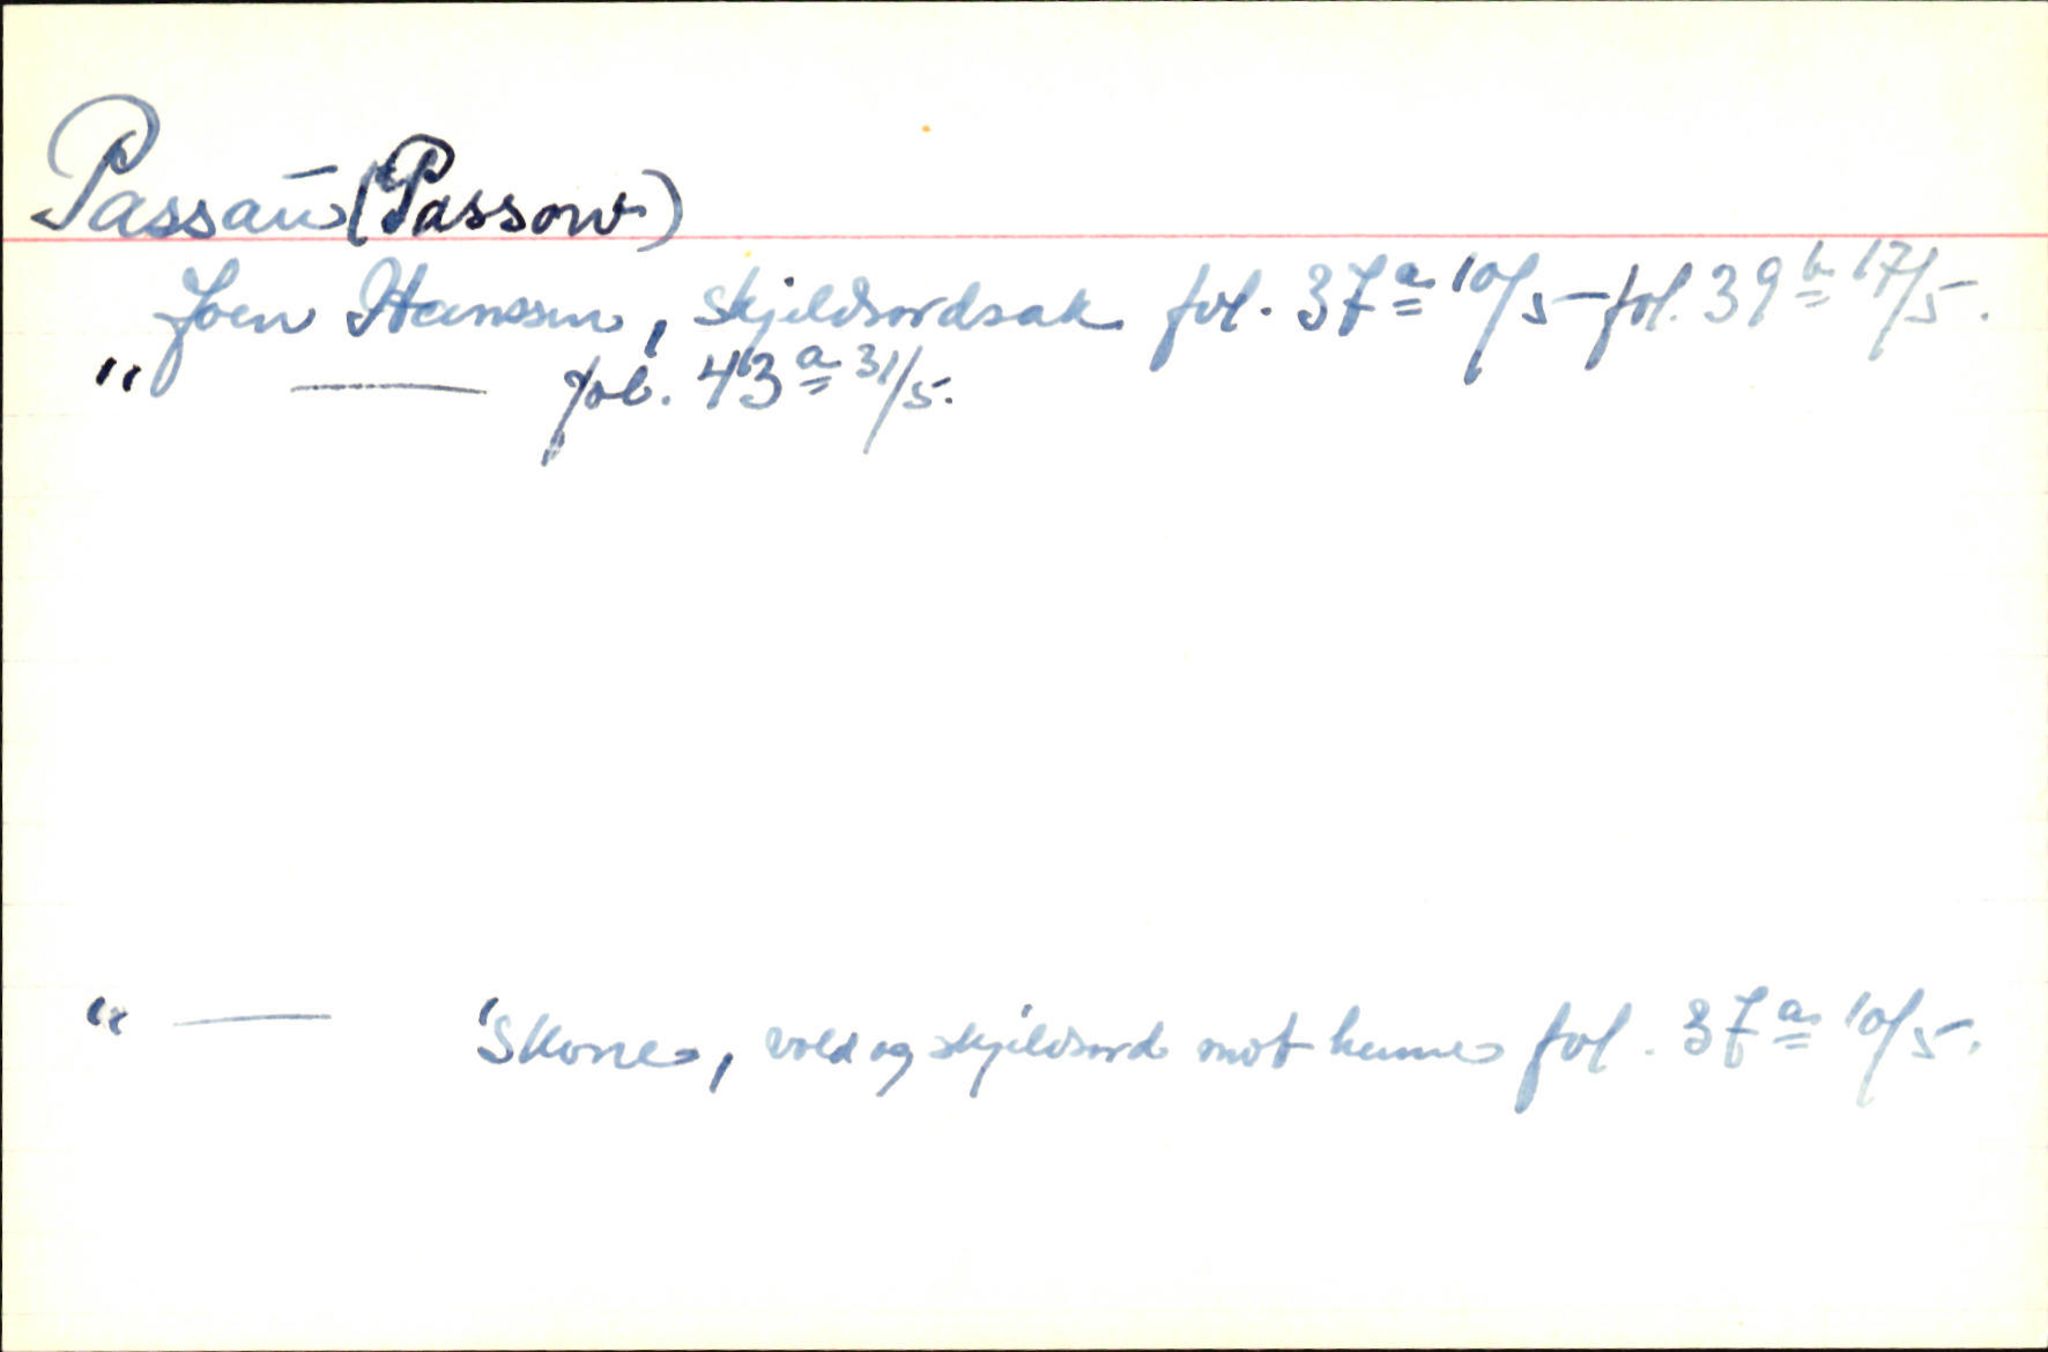 Passau (Passow)
Joen Hanssen, skjeldsordsak fol. 37a 10/5 - fol. 39b 17/5.
" — fol. 43a 31/5.
" — 's Kone, vold og skjeldsord mot henne fol. 37a 10/5.